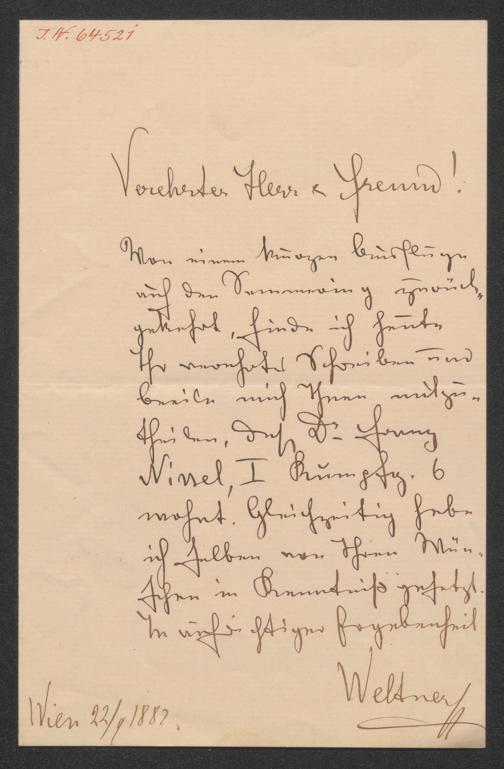 I.N. 64521
Verehrter Herr & Freund!
Von einem kurzen Ausfluge
auf den Semmering zurück-
gekehrt, finde ich heute
Ihr verehrtes Schreiben und
beeile mich Ihnen mitzu-
theilen, daß Dr. Franz
Nissel, I Rumpfg. 6
wohnt. Gleichzeitig habe
ich selben von Ihren Wün-
schen in Kenntniß gesetzt.
In aufrichtiger Ergebenheit
Weltner
Wien 22/9 1882.